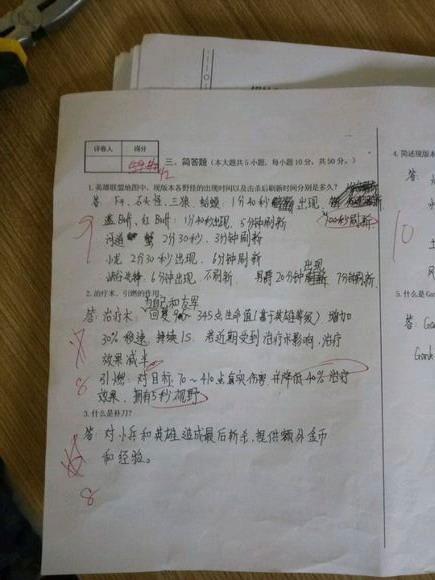 评卷人 得分
三、简答题（本大题共5小题，每小题10分，共50分。）
1. 英雄联盟地图中，现版本各野怪的出现时间以及击杀后刷新时间分别是多久？
答：F4、石头怪、三狼、蛤蟆：1分40秒出现，100秒刷新
蓝Buff、红Buff：1分40秒出现，5分钟刷新
河道蟹 2分30秒，3分钟刷新
小龙 2分30秒出现，6分钟刷新
峡谷先锋：6分钟出现 不刷新 男爵20分钟出现 7分钟刷新
9
2. 治疗术、引燃的作用
答：治疗术：为自己和友军回复90～345点生命值（基于英雄等级）增加
30%移速，持续1S. 若近期受到治疗术影响，治疗
效果减半
引燃：对目标70～410点真实伤害并降低40%治疗
效果、拥有5秒视野
8
3. 什么是补刀？
答：对小兵和英雄造成最后斩杀，提供额外金币
和经验。
8
4. 简述现版本
答：
10
5. 什么是Ga
答：Ga
Gank